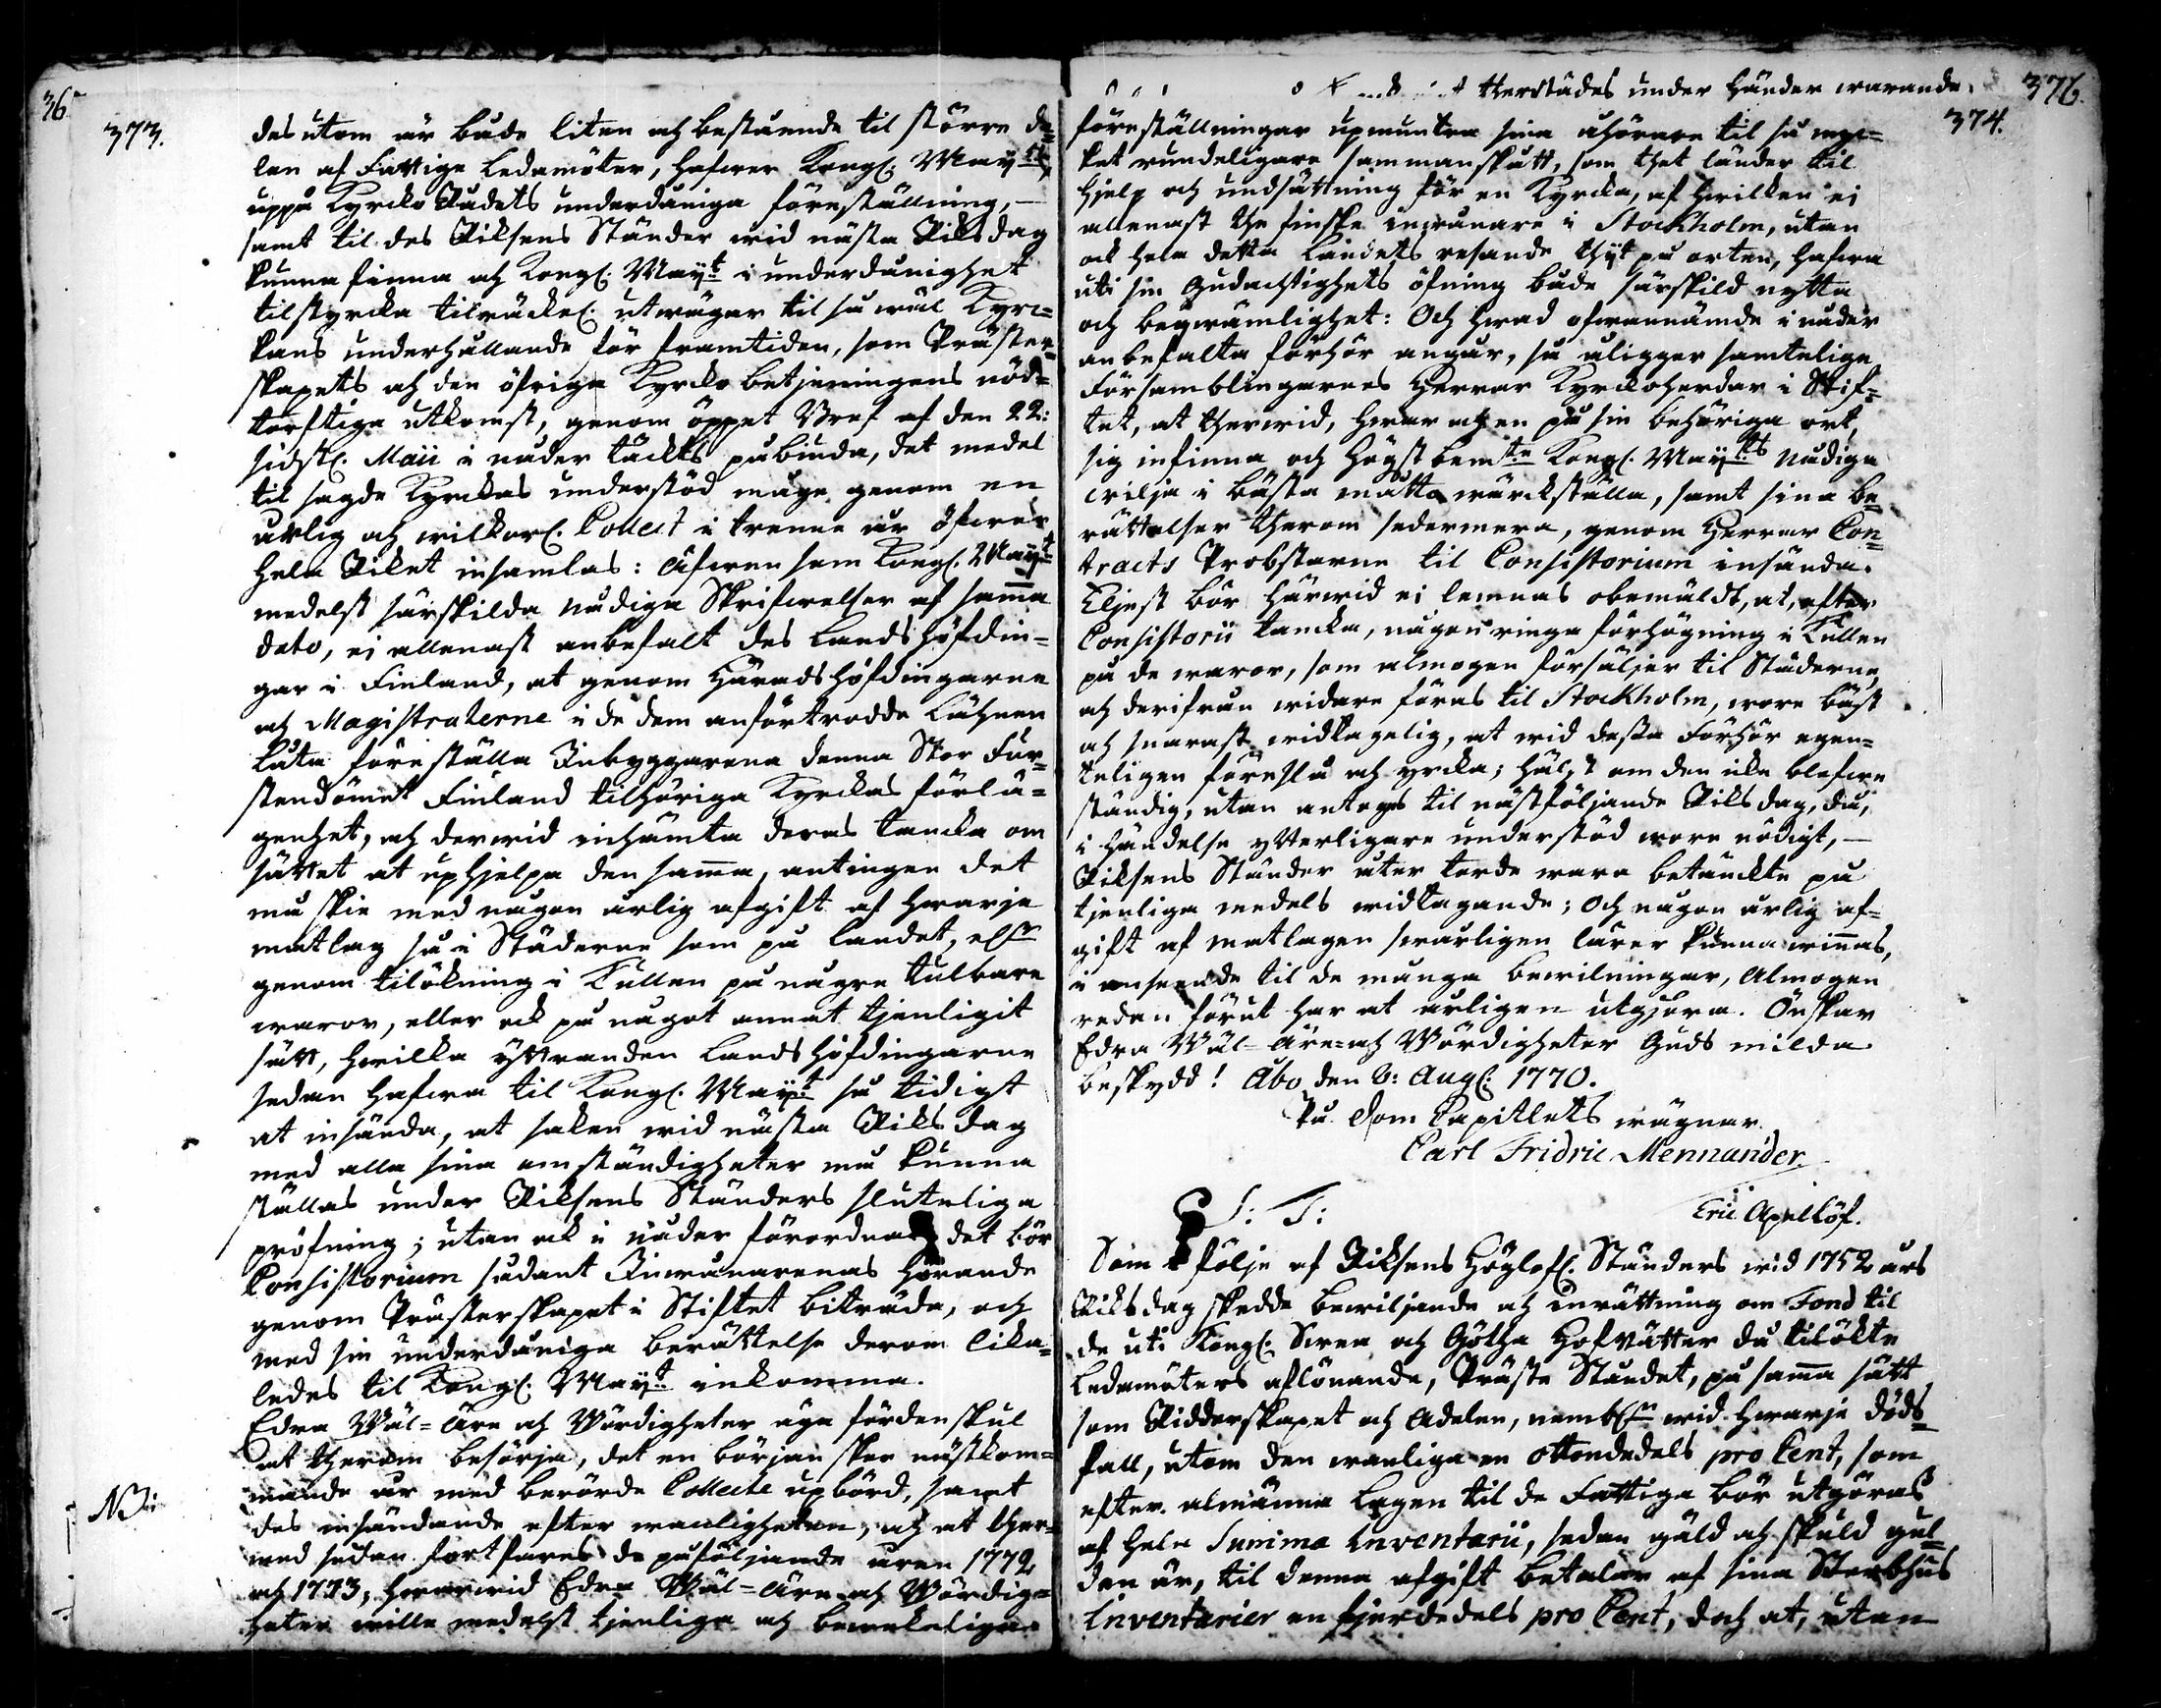 373.
des utom är både liten och bestående til större de-
len af Fattige Ledamöter, hafwer Kongl. Maytt
uppå Kyrcko Rådets underdåniga föreställning, —
samt til des Riksens Ständer wid nästa Riksdag
kunna finna och Kongl. Mayt i underdånighet
tilstyrcka tilräckel. utwägar til så wäl Kyrc-
kans underhållande för framtiden, som Präster-
skapets och den öfriga Kyrcko betjeningens nöd-
torftiga utkomst, genom öppet Bref af den 22:
sidstl. Maii i nåder täckts påbiuda, det medel
til sagde Kyrckas understöd måge genom en
årlig och wilkorl. Collect i trenne år öfwer
hela Riket insamlas: Äfwen som Kongl. Mayt
medelst särskilda nådiga Skrifwelser af samma
dato, ei allenast anbefalt des Landshöfdin-
gar i Finland, at genom Häradshöfdingarne
och Magistraterne i de dem anförtrodde Lähnen
låta föreställa Inbyggarena denna Stor För-
stendömet Finland tilhöriga Kyrckas förlä-
genhet, och derwid inhämta deras tancka om
sättet at uphjelpa den samma, antingen det
må skie med någon årlig afgift af hwarje
matlag så i Städerne som på landet, elr
genom tilökning i Tullen på någre tulbare
waror, eller ock på något annat tjenligit
sätt, hwilka yttranden Landshöfdingarne
sedan hafwa til Kongl. Mayt så tidigt
at insända, at saken wid nästa Riksdag
med alla sina omständigheter må kunna
ställas under Riksens Ständers slutelige
pröfning; utan ock i nåder förordnat det bör
Consistorium sådant Inwånarenas hörande
genom Prästerskapet i Stiftet biträda, och
med sin underdåniga berättelse derom lika-
ledes til Kongl. Mayt inkomma.
Edra Wäl-Äre och Wördigheter äga fördenskul
at therom besörja, det en början sker nästkom-
mande år med berörde Collecte upbörd, samt
NB:
des insändande efter wanligheten, och at ther-
med sedan fortfares de påföljande åren 1772
och 1773; hwarwid Edra Wäl-Äre och Wördig-
heter wille medelst tjenliga och bewekeliga
376.
374.
therstädes under händer warande
föreställningar upmuntra sina åhörare til så myc-
ket rundeligare sammanskått, som thet länder til
hjelp och undsättning för en Kyrcka, af hwilken ei
allenast the finske inwånare i Stockholm, utan
ock hela detta Landets resande thyt på orten, hafwa
uti sin Gudachtighets öfning både särskild nytta
och beqwämlighet: Och hwad ofwannämde i nåder
anbefalte förhör angår, så åligger samtelige
Församblingarnes Herrar Kyrckoherdar i Stif-
tet, at therwid, hwar och en på sin behöriga ort,
sig infinna och Högstbemte Kongl. Maytts nådiga
wilja i bästa måtto wärckställa, samt sina be-
rättelser therom sedermera, genom Herrar Con-
tracts Probstarne til Consistorium insända.
Eljest bör härwid ei lemnas obemäldt, at, efter
Consistorii tancka, någon ringa förhögning i Tullen
på de waror, som almogen försäljer til Städerne,
och derifrån widare föras til Stockholm, wore bäst
och snarast widtagelig, at wid dessa Förhör egen-
teligen föreslå och yrcka; hälst om den icke blefwe
ständig, utan antoges til nästföljande Riksdag, då,
i händelse ytterligare understöd wore nödigt, —
Riksens Ständer åter torde wara betänckte på
tjenliga medels widtagande; Och någon årlig af-
gift af matlagen swårligen lärer kunna winnas,
i anseende til de många bewilningar, Almogen
redan förut har at årligen utgjöra. Önskar
Edra Wäl-Äre-och Wördigheter Guds milda
beskydd! Åbo den 6: Augl. 1770.
På Dom Capitlets wägnar.
Carl Fridric Mennander.
Eric Apellöf.
S: T:
Som följe af Riksens Höglofl. Ständers wid 1752 års
Riksdag skedde bewiljande och inrättning om Fond til
de uti Kongl. Swea och Götha Hofrätter då tilökte
Ledamöters aflönande, Präste Ståndet, på samma sätt
som Ridderskapet och Adelen, nemblr wid hwarje döds-
fall, utom den wanliga en ottondedels pro Cent, som
efter almänna Lagen til de Fattige bör utgöras
af hela Summa Inventarii, sedan gäld och skuld gul-
den är, til denna afgift betalar af sina Sterbhus
Inventarier en fjerdedels pro Cent, doch at, utan